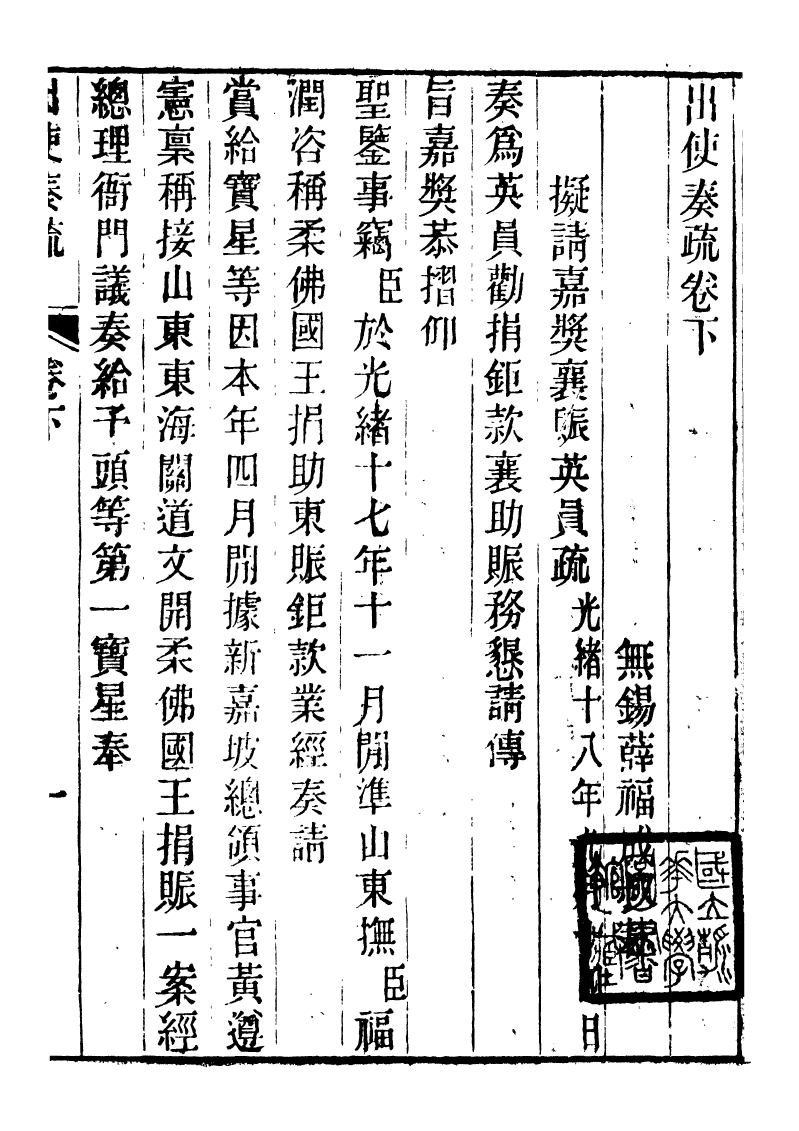 出使奏疏卷下
無錫薛福成
擬請嘉獎襄賑英員疏 光緒十八年 日
奏爲英員勸捐鉅款襄助賑務懇請傳
旨嘉獎恭摺仰
聖鑒事竊臣於光緒十七年十一月閒準山東撫臣福
潤咨稱柔佛國王捐助東賑鉅款業經奏請
賞給寶星等因本年四月閒據新嘉坡總領事官黃遵
憲稟稱接山東東海關道文開柔佛國王捐賑一案經
總理衙門議奏給予頭等第一寶星奉
出使奏疏 卷下 一
國立清華大學